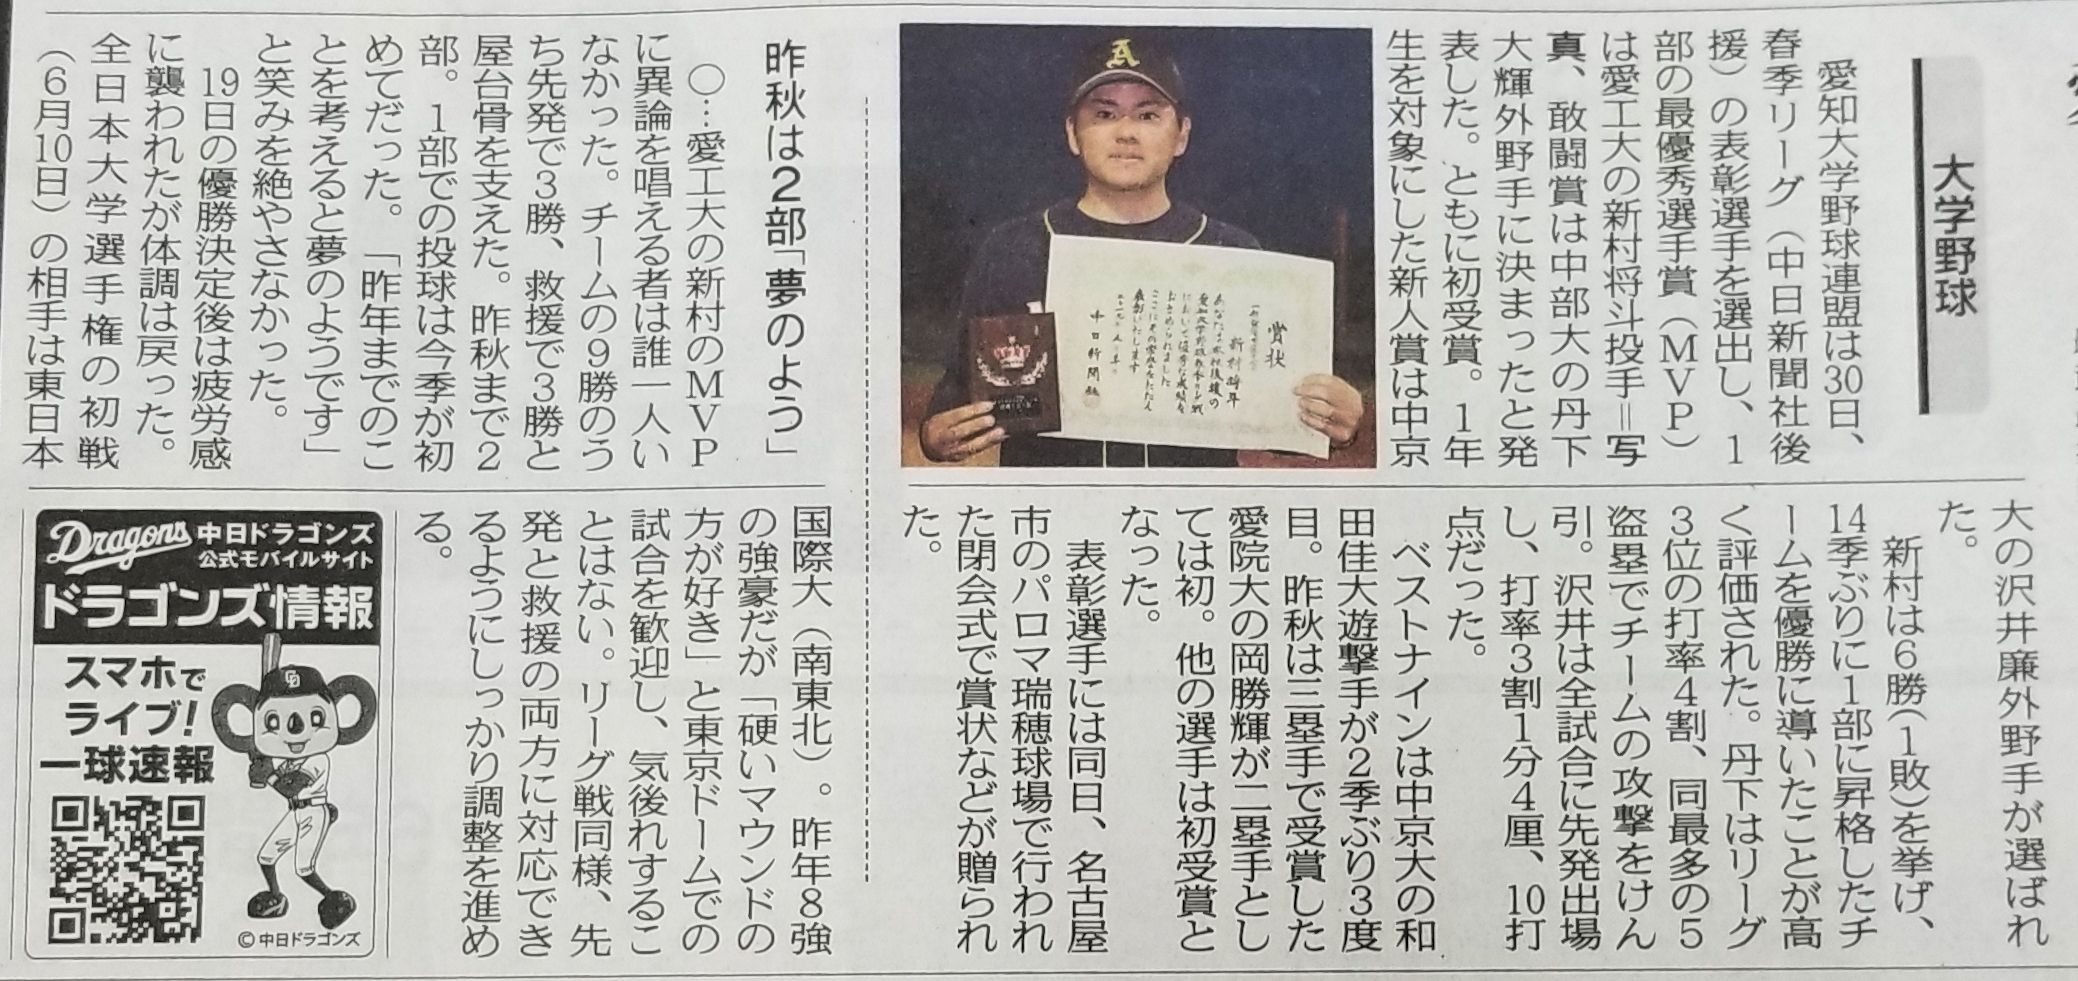 大学野球
愛知大学野球連盟は30日、
春季リーグ(中日新聞社後
援)の表彰選手を選出し、1
部の最優秀選手賞(MVP)
は愛工大の新村将斗投手=写
真、敢闘賞は中部大の丹下
大輝外野手に決まったと発
表した。ともに初受賞。1年
生を対象にした新人賞は中京
大の沢井廉外野手が選ばれ
た。
新村は6勝(1敗)を挙げ、
14季ぶりに1部に昇格したチ
ームを優勝に導いたことが高
く評価された。丹下はリーグ
3位の打率4割、同最多の5
盗塁でチームの攻撃をけん
引。沢井は全試合に先発出場
し、打率3割1分4厘、10打
点だった。
ベストナインは中京大の和
田佳大遊撃手が2季ぶり3度
目。昨秋は三塁手で受賞した
愛院大の岡勝輝が二塁手とし
ては初。他の選手は初受賞と
なった。
表彰選手には同日、名古屋
市のパロマ瑞穂球場で行われ
た閉会式で賞状などが贈られ
た。
A
賞状
中日新聞社
昨秋は2部「夢のよう」
○…愛工大の新村のMVP
に異論を唱える者は誰一人い
なかった。チームの9勝のう
ち先発で3勝、救援で3勝と
屋台骨を支えた。昨秋まで2
部。1部での投球は今季が初
めてだった。「昨年までのこ
とを考えると夢のようです」
と笑みを絶やさなかった。
19日の優勝決定後は疲労感
に襲われたが体調は戻った。
全日本大学選手権の初戦
(6月10日)の相手は東日本
国際大(南東北)。昨年8強
の強豪だが「硬いマウンドの
方が好き」と東京ドームでの
試合を歓迎し、気後れするこ
とはない。リーグ戦同様、先
発と救援の両方に対応でき
るようにしっかり調整を進め
る。
Dragons 中日ドラゴンズ
公式モバイルサイト
ドラゴンズ情報
スマホで
ライブ!
一球速報
CD
©中日ドラゴンズ